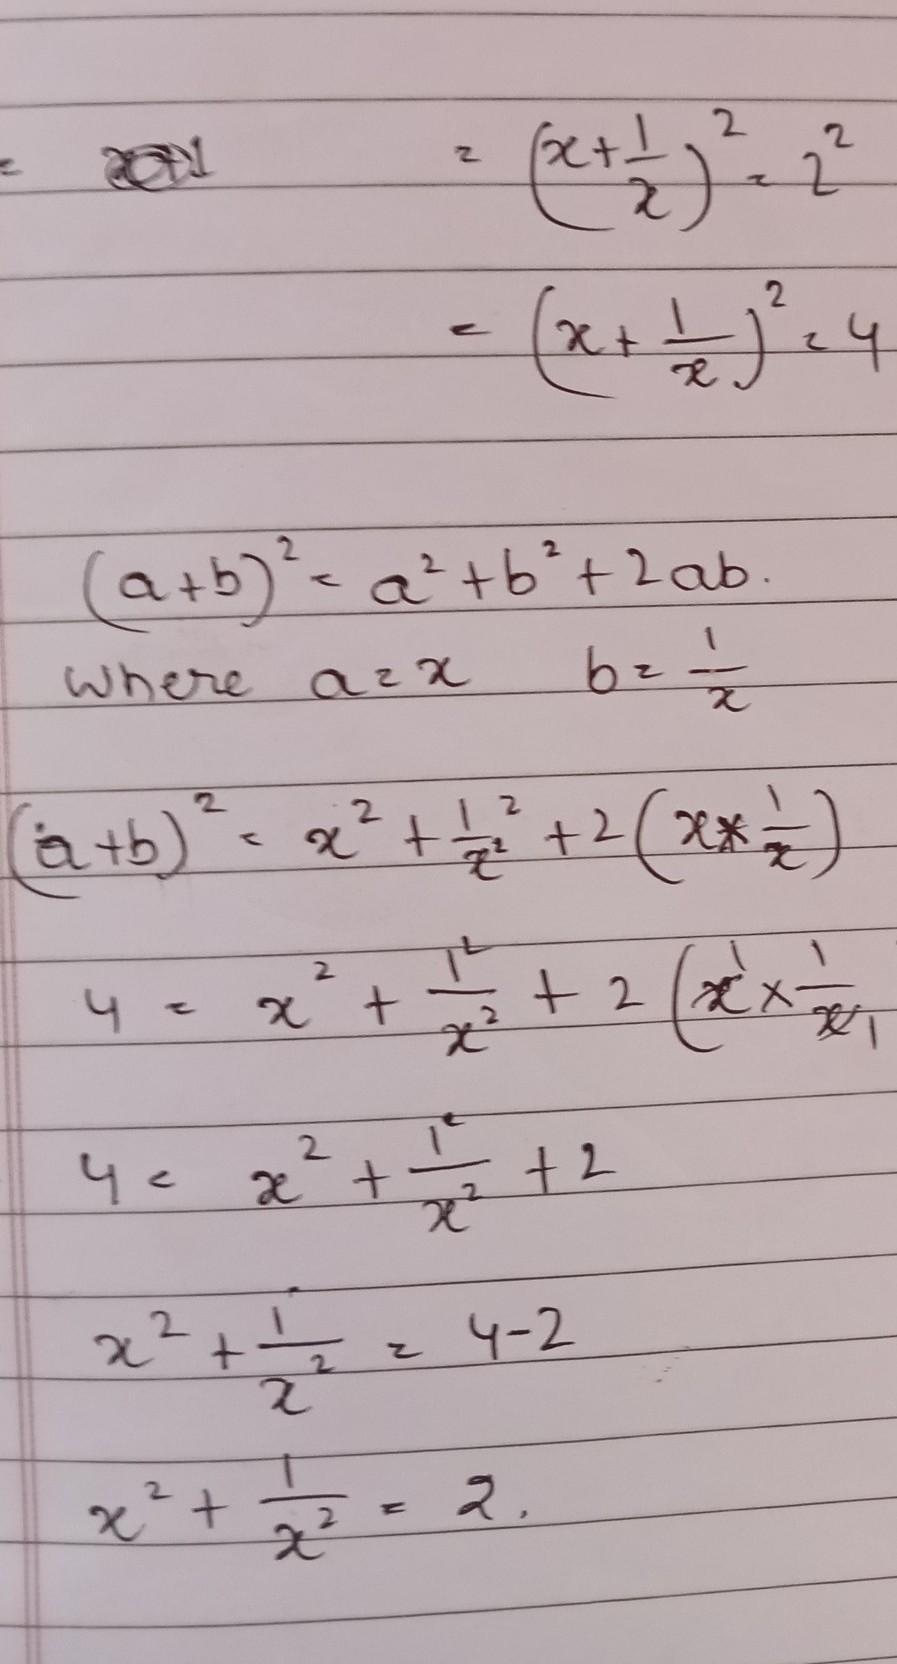 = (x + 1/x)² = 2²
= (x + 1/x)² = 4
(a+b)² = a² + b² + 2ab.
where a = x b = 1/x
(a+b)² = x² + 1²/x² + 2(x × 1/x)
4 = x² + 1²/x² + 2(x¹ × 1/x₁
4 = x² + 1²/x² + 2
x² + 1/x² = 4-2
x² + 1/x² = 2.